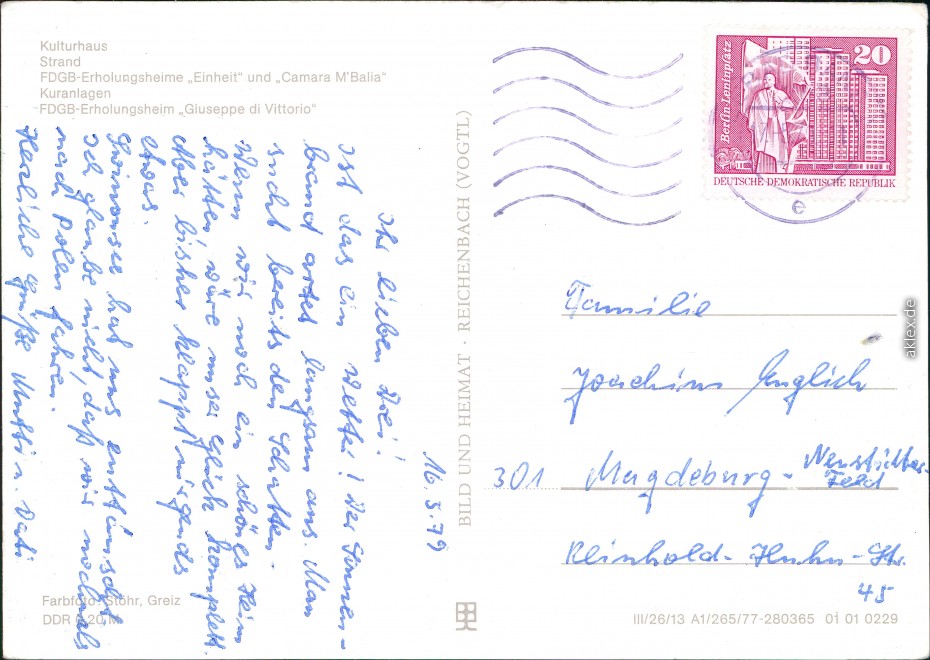 Kulturhaus
Strand
FDGB-Erholungsheime „Einheit" und „Camara M'Balia"
Kuranlagen
FDGB-Erholungsheim „Giuseppe di Vittorio"
16.5.79
Ihr lieben Drei!
Ist das ein Wetter! Der Sonnen-
brand artet langsam aus. Man
sucht bereits den Schatten.
Wenn wir noch ein schönes Heim
hätten wäre unser Glück komplett.
Aber bisher klappt nirgends
etwas.
hat uns enttäuscht,
Ich glaube nicht, daß wir nochmals
nach Polen fahren.
Herzliche Grüße Mutti u. Vati
Farbfoto: Stöhr, Greiz
DDR 0,20 M
BILD UND HEIMAT · REICHENBACH (VOGTL)
Berlin-Leninplatz
20
DEUTSCHE DEMOKRATISCHE REPUBLIK
e
Familie
Joachim Englich
301 Magdeburg-Neustädter-
Feld
Reinhold-Huhn-Str.
45
III/26/13 A1/265/77-280365 01 01 0229
aklex.de